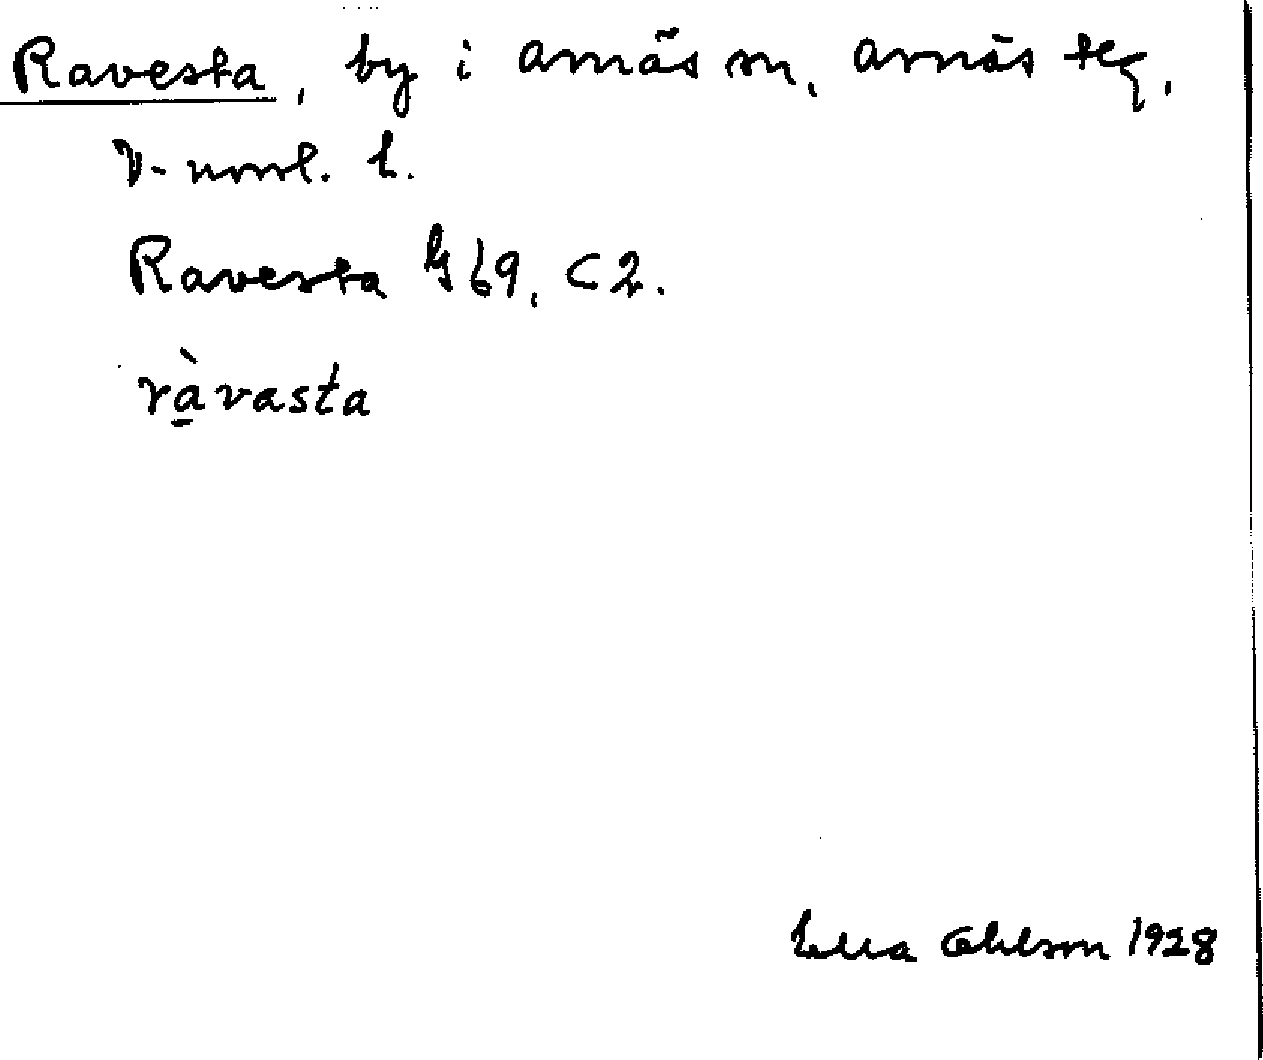 Ravesta, by i arnäs sn, arnäs tg,
V-norrl. l.
Ravesta G 69, C2.
ràvasta
Ella Ohlson 1928